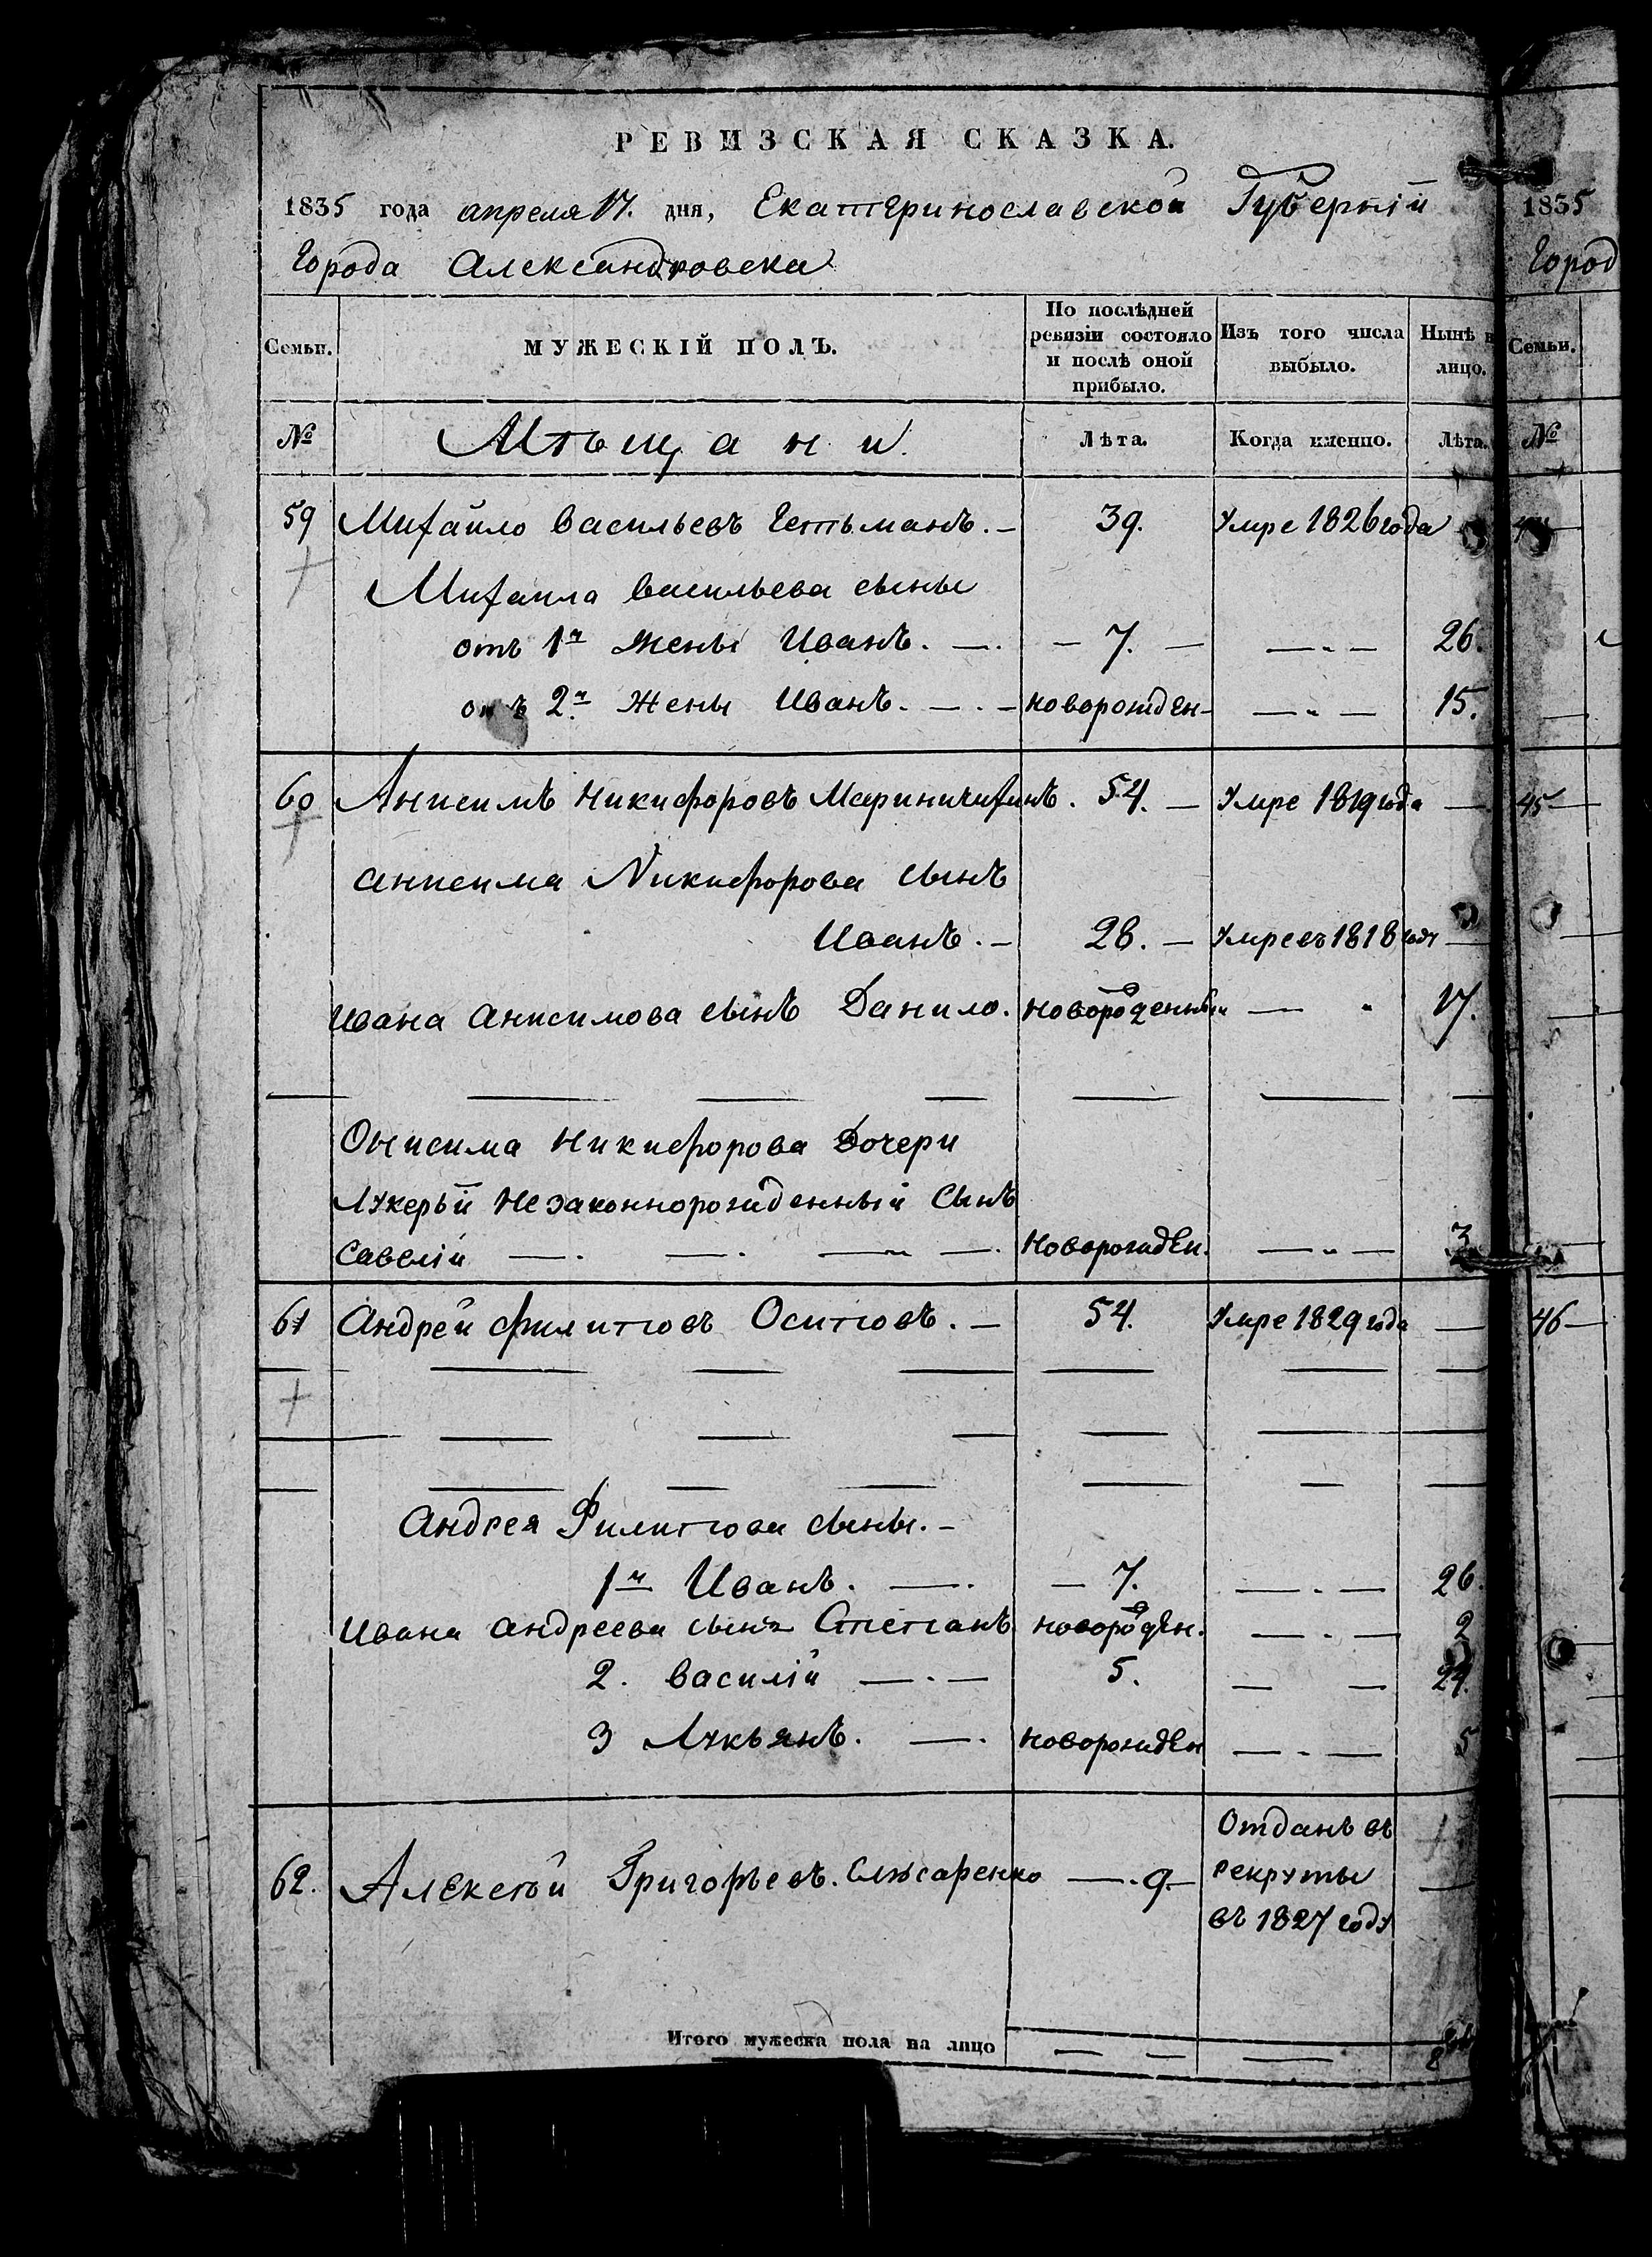 РЕВИЗСКАЯ СКАЗКА.
1835 года апреля 17. дня, Екатеринославской Губерніи
Города Александровска
Семьи. МУЖЕСКІЙ ПОЛЪ. По послѣдней ревизіи состояло и послѣ оной прибыло. Изъ того числа выбыло. Нынѣ на лицо.
№ Мѣщани Лѣта. Когда именно. Лѣта.
59 Михайло Васильевъ Гетьманъ. — 39. Умре 1826 года —
Михаила Васильева сыны
отъ 1й жены Иванъ. — . — 7. — — „ — 26.
отъ 2й жены Иванъ. — . — новорожден — — „ — 15.
60 Анисимъ Никифоровъ . 54. — Умре 1819 года —
Анисима Никифорова сынъ
Иванъ. — 28. — Умре въ 1818 году —
Ивана Анисимова сынъ Данило. новорожденный — „ 17.
Онисима Никифорова Дочери
Лукерьи Незаконнорожденный Сынъ
Савелій — . — . — „ — . Новорожден. — „ — 3
61 Андрей Филиповъ Осиповъ. — 54. Умре 1829 года —
Андрея Филипова сыны. —
1й Иванъ. — . — 7. — . — 26.
Ивана Андреева сынъ Степанъ новорожден. — . — 2
2. Василій — . — 5. — — 24.
3 Лукьянъ. — . новорожден — . — 5
62. Алексѣй Григорьевъ. Слюсаренко — . 9. — Отданъ въ
рекруты —
въ 1827 году
Итого мужеска пола на лицо
1835
Город
Семьи.
№
45 —
46 —